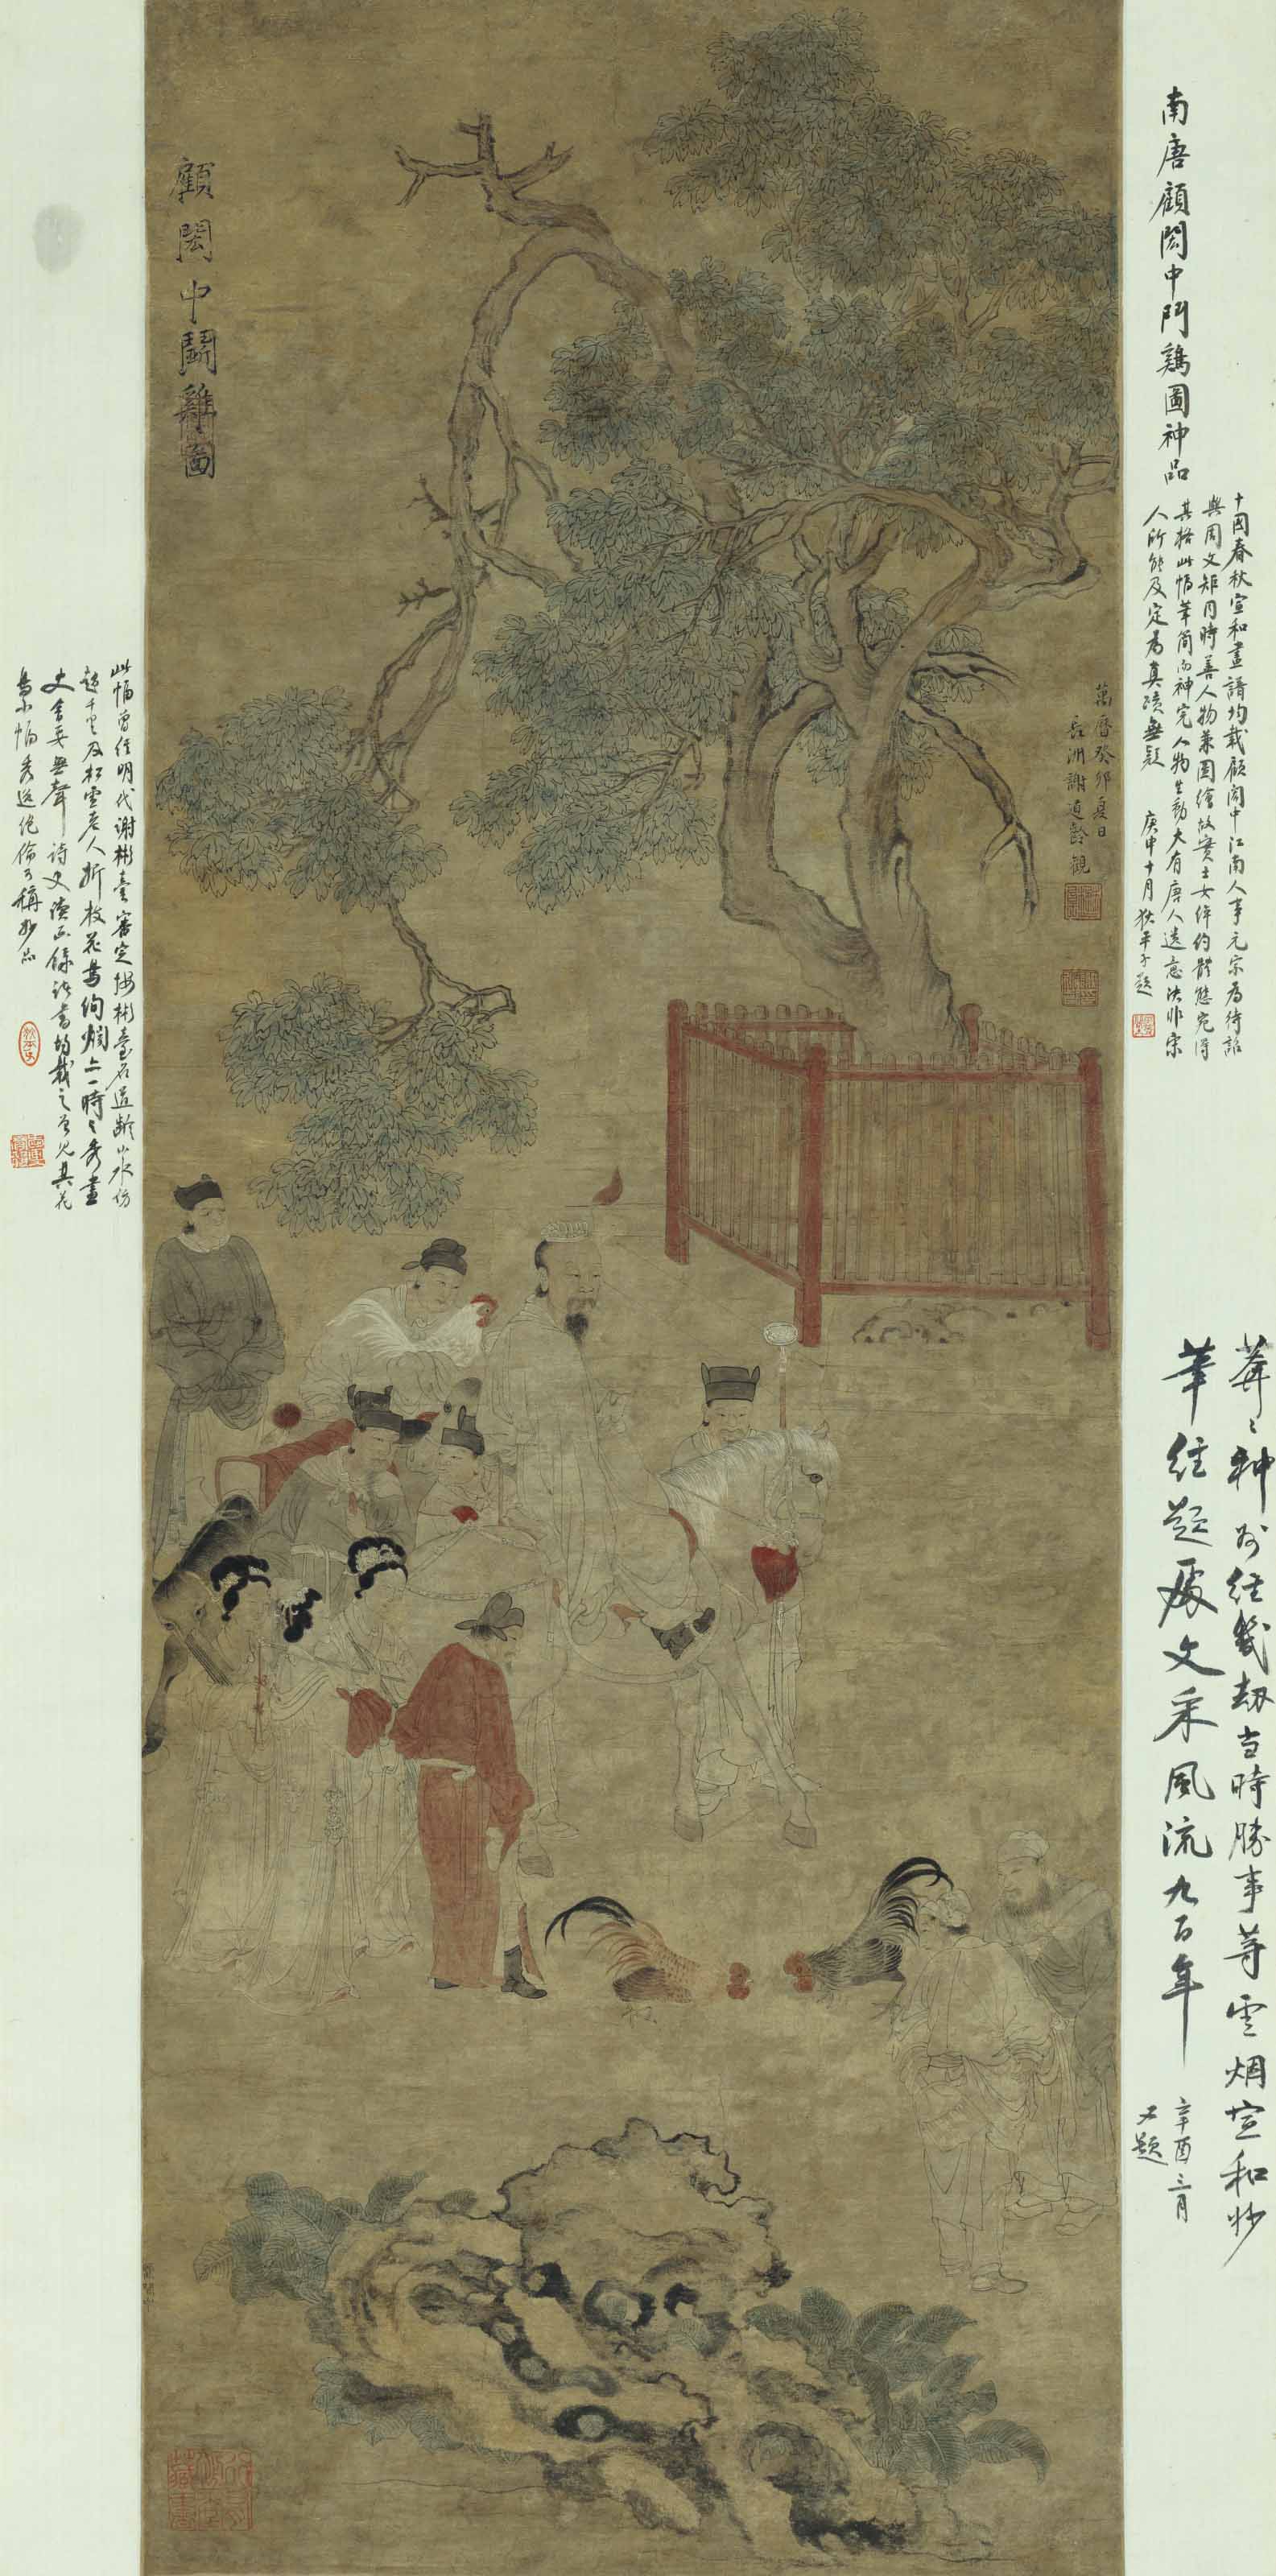 南唐顧閎中鬥鷄圖神品
十國春秋宣和畫譜均載顧閎中江南人事元宗為待詔
與周文矩同時善人物兼圖繪故實士女綽約體態宛得
其格此幀筆簡而神完人物生動大有唐人遺意決非宋
人所能及定為真蹟無疑 庚申十月狄平子題
莽莽神州經幾劫當時勝事等雲烟宣和妙
筆經題處文采風流九百年
辛酉三月
又題
萬曆癸卯夏日
長洲謝道齡觀
顧閎中鬬雞圖
此幀曾經明代謝彬臺審定按彬臺名道齡山水仿
趙千里及松雪老人折枝花鳥絢爛上一時
史會要無聲詩史讀畫錄諸書均載之曾見其花
鳥小幀秀逸絕倫可稱妙品